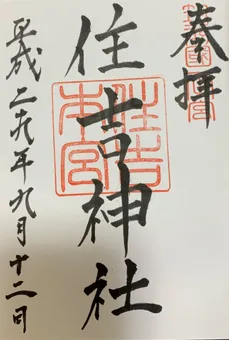 奉拝
住吉神社
住吉
本宮
平成二十九年九月十二日